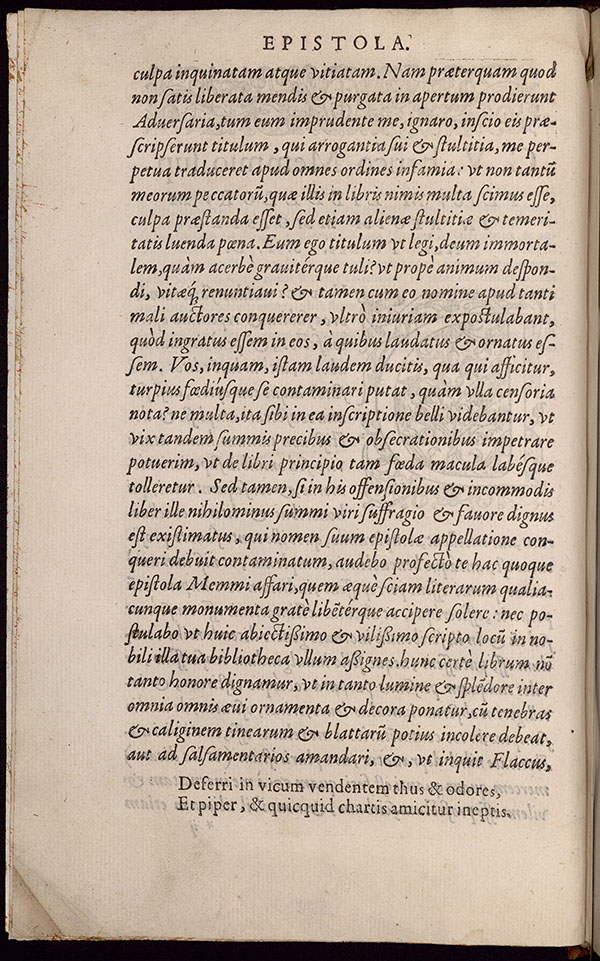 EPISTOLA.
culpa inquinatam atque vitiatam. Nam præterquam quod
non satis liberata mendis & purgata in apertum prodierunt
Aduersaria, tum eum imprudente me, ignaro, inscio eis præ-
scripserunt titulum, qui arrogantia sui & stultitia, me per-
petua traduceret apud omnes ordines infamia: vt non tantū
meorum peccatorū, quæ illis in libris nimis multa scimus esse,
culpa præstanda esset, sed etiam alienæ stultitiæ & temeri-
tatis luenda pœna. Eum ego titulum vt legi, deum immorta-
lem, quàm acerbè grauitérque tuli? vt propè animum despon-
di, vitæq́; renuntiaui? & tamen cum eo nomine apud tanti
mali auctores conquererer, vltrò iniuriam expostulabant,
quòd ingratus essem in eos, à quibus laudatus & ornatus es-
sem. Vos, inquam, istam laudem ducitis, qua qui afficitur,
turpius fœdiúsque se contaminari putat, quàm vlla censoria
nota? ne multa, ita sibi in ea inscriptione belli videbantur, vt
vix tandem summis precibus & obsecrationibus impetrare
potuerim, vt de libri principio tam fœda macula labésque
tolleretur. Sed tamen, si in his offensionibus & incommodis
liber ille nihilominus summi viri suffragio & fauore dignus
est existimatus, qui nomen suum epistolæ appellatione con-
queri debuit contaminatum, audebo profectò te hac quoque
epistola Memmi affari, quem æquè sciam literarum qualia-
cunque monumenta gratè libētérque accipere solere: nec po-
stulabo vt huic abiectissimo & vilissimo scripto locū in no-
bili illa tua bibliotheca vllum assignes. hunc certè librum nō
tanto honore dignamur, vt in tanto lumine & splēdore inter
omnia omnis æui ornamenta & decora ponatur, cū tenebras
& caliginem tinearum & blattarū potius incolere debeat,
aut ad salsamentarios amandari, &, vt inquit Flaccus,
Deferri in vicum vendentem thus & odores,
Et piper, & quicquid chartis amicitur ineptis.